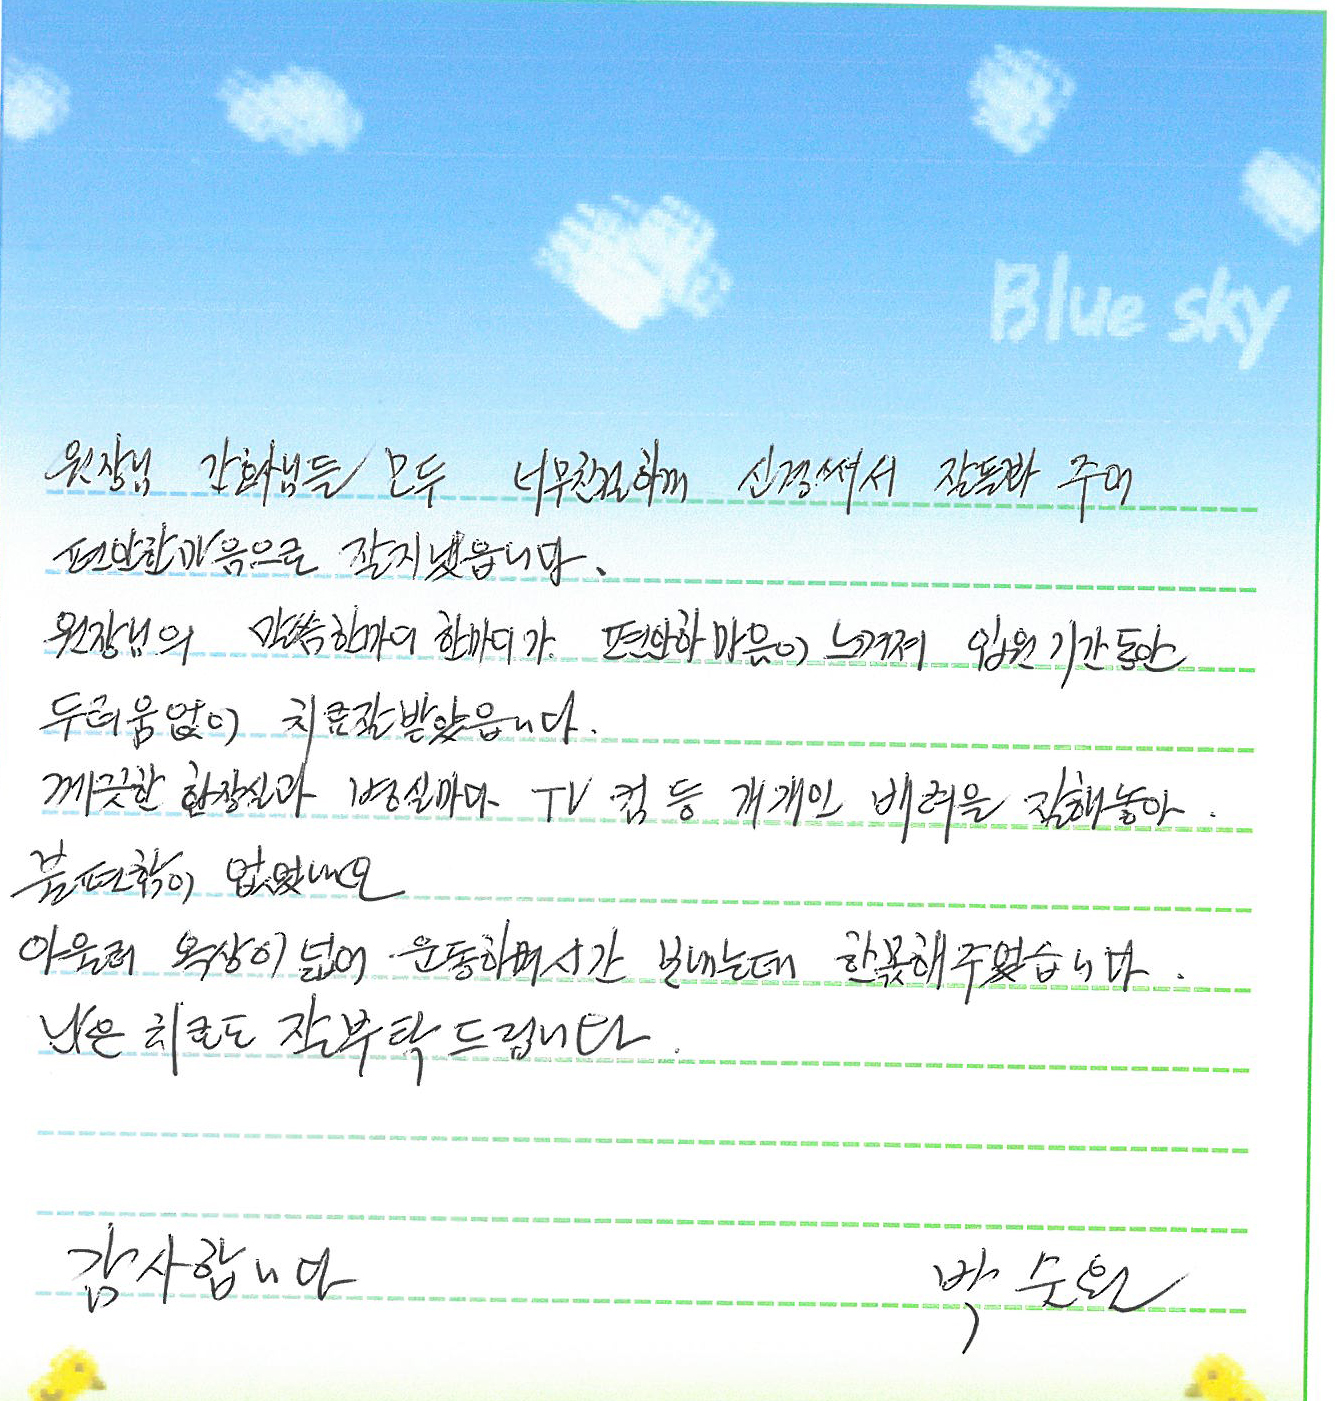 Blue sky
원장님 간호사님들 모두 너무친절하게 신경써서 잘돌봐 주어
편안한마음으로 잘지냈읍니다.
원장님의 말씀한마디 한마디가 편안한마음이 느껴져 입원기간동안
두려움없이 치료잘받았읍니다.
깨끗한 화장실과 병실마다 TV 컴 등 개개인 배려을 잘해놓아.
불편함이 없었네요
아울러 옥상이 넓어 운동하며시간 보내는데 한몫해주었습니다.
남은 치료도 잘부탁드립니다.
감사합니다 박순원